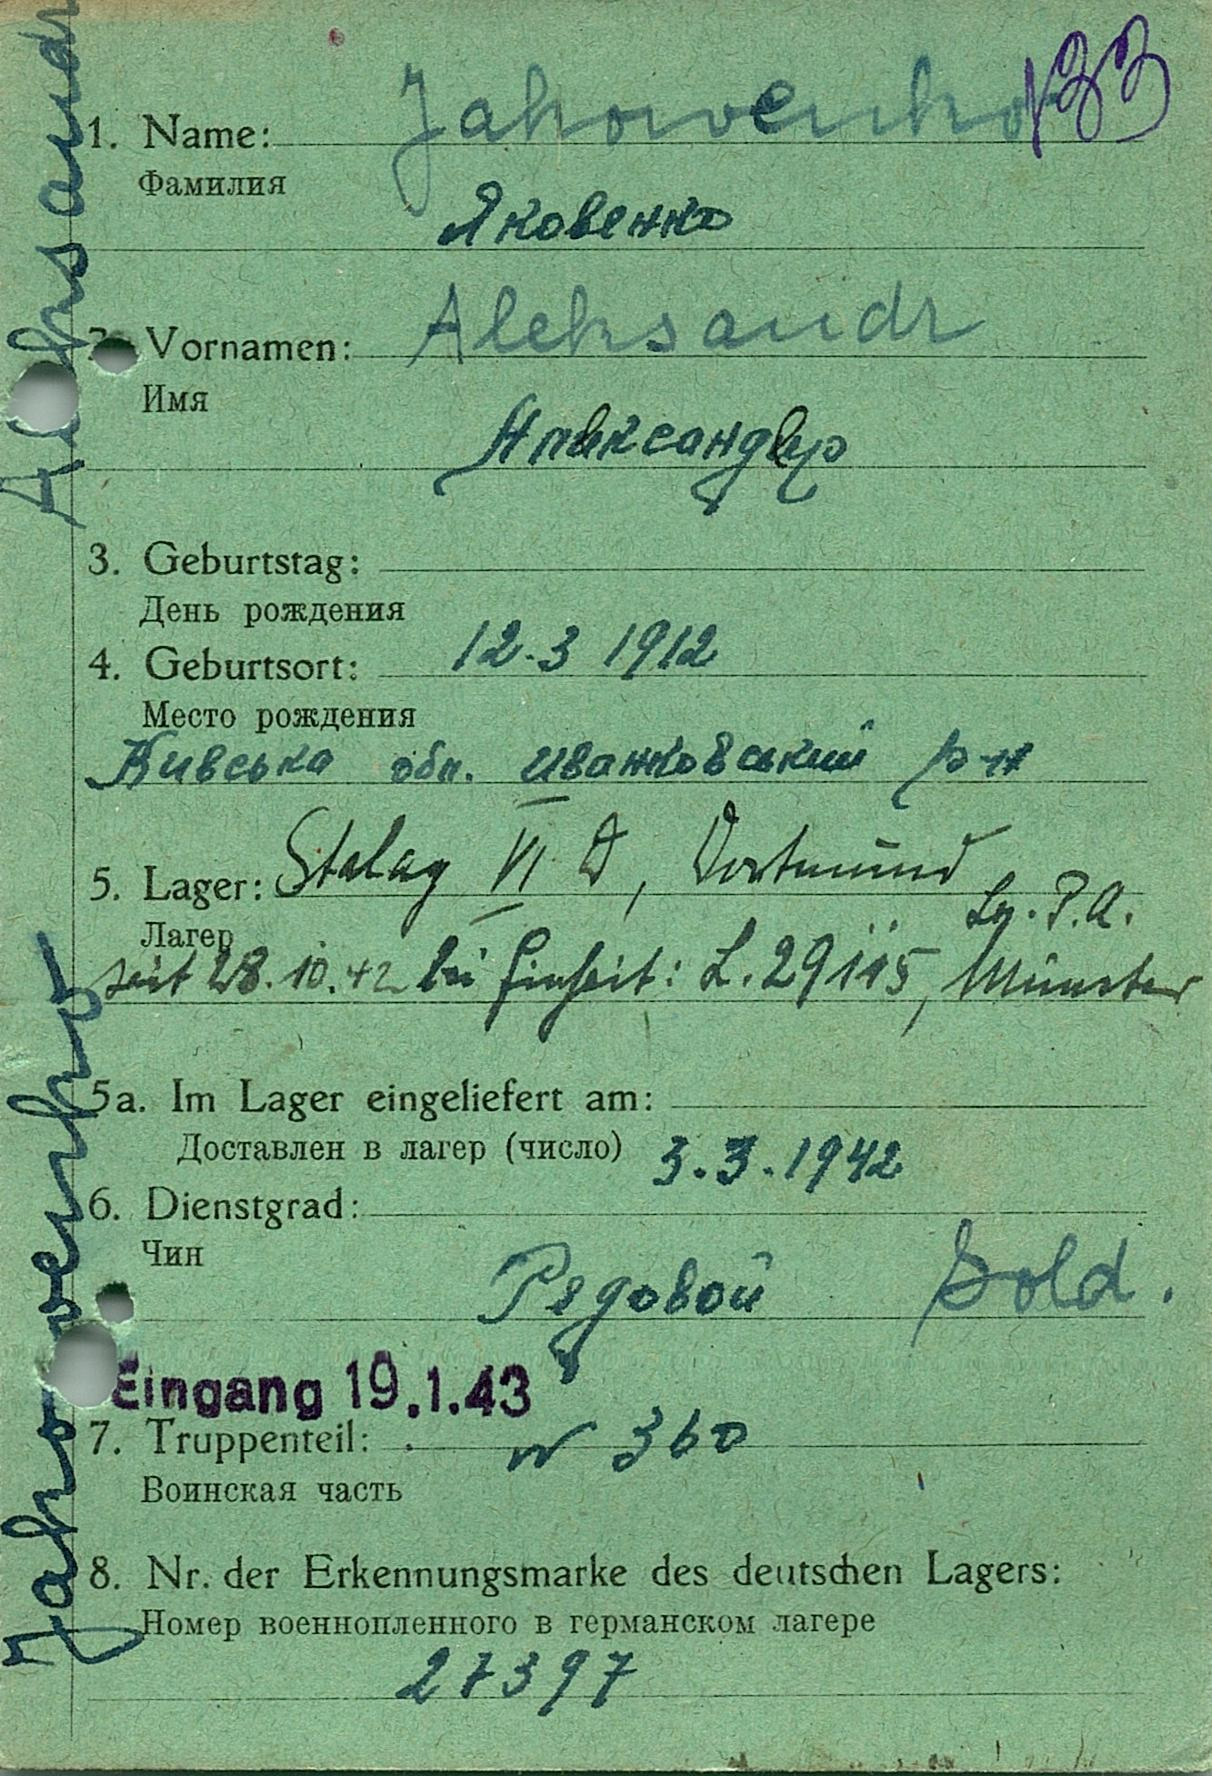 133
1. Name: Jakowenko
Фамилия
Яковенко
2. Vornamen: Aleksandr
Имя
Александр
3. Geburtstag:
День рождения
12.3 1912
4. Geburtsort:
Место рождения
Кивська обл. иванковський р-н
5. Lager: Stalag VI D, Dortmund
Лагер
Ln. P.A.
seit 28.10.42 bei Einheit: L.29115, Münster
5a. Im Lager eingeliefert am:
Доставлен в лагер (число) 3.3.1942
6. Dienstgrad:
Чин
Редовой Sold.
Eingang 19.1.43
7. Truppenteil: N 360
Воинская часть
8. Nr. der Erkennungsmarke des deutschen Lagers:
Номер военнопленного в германском лагере
27397
Jakowenko Aleksandr